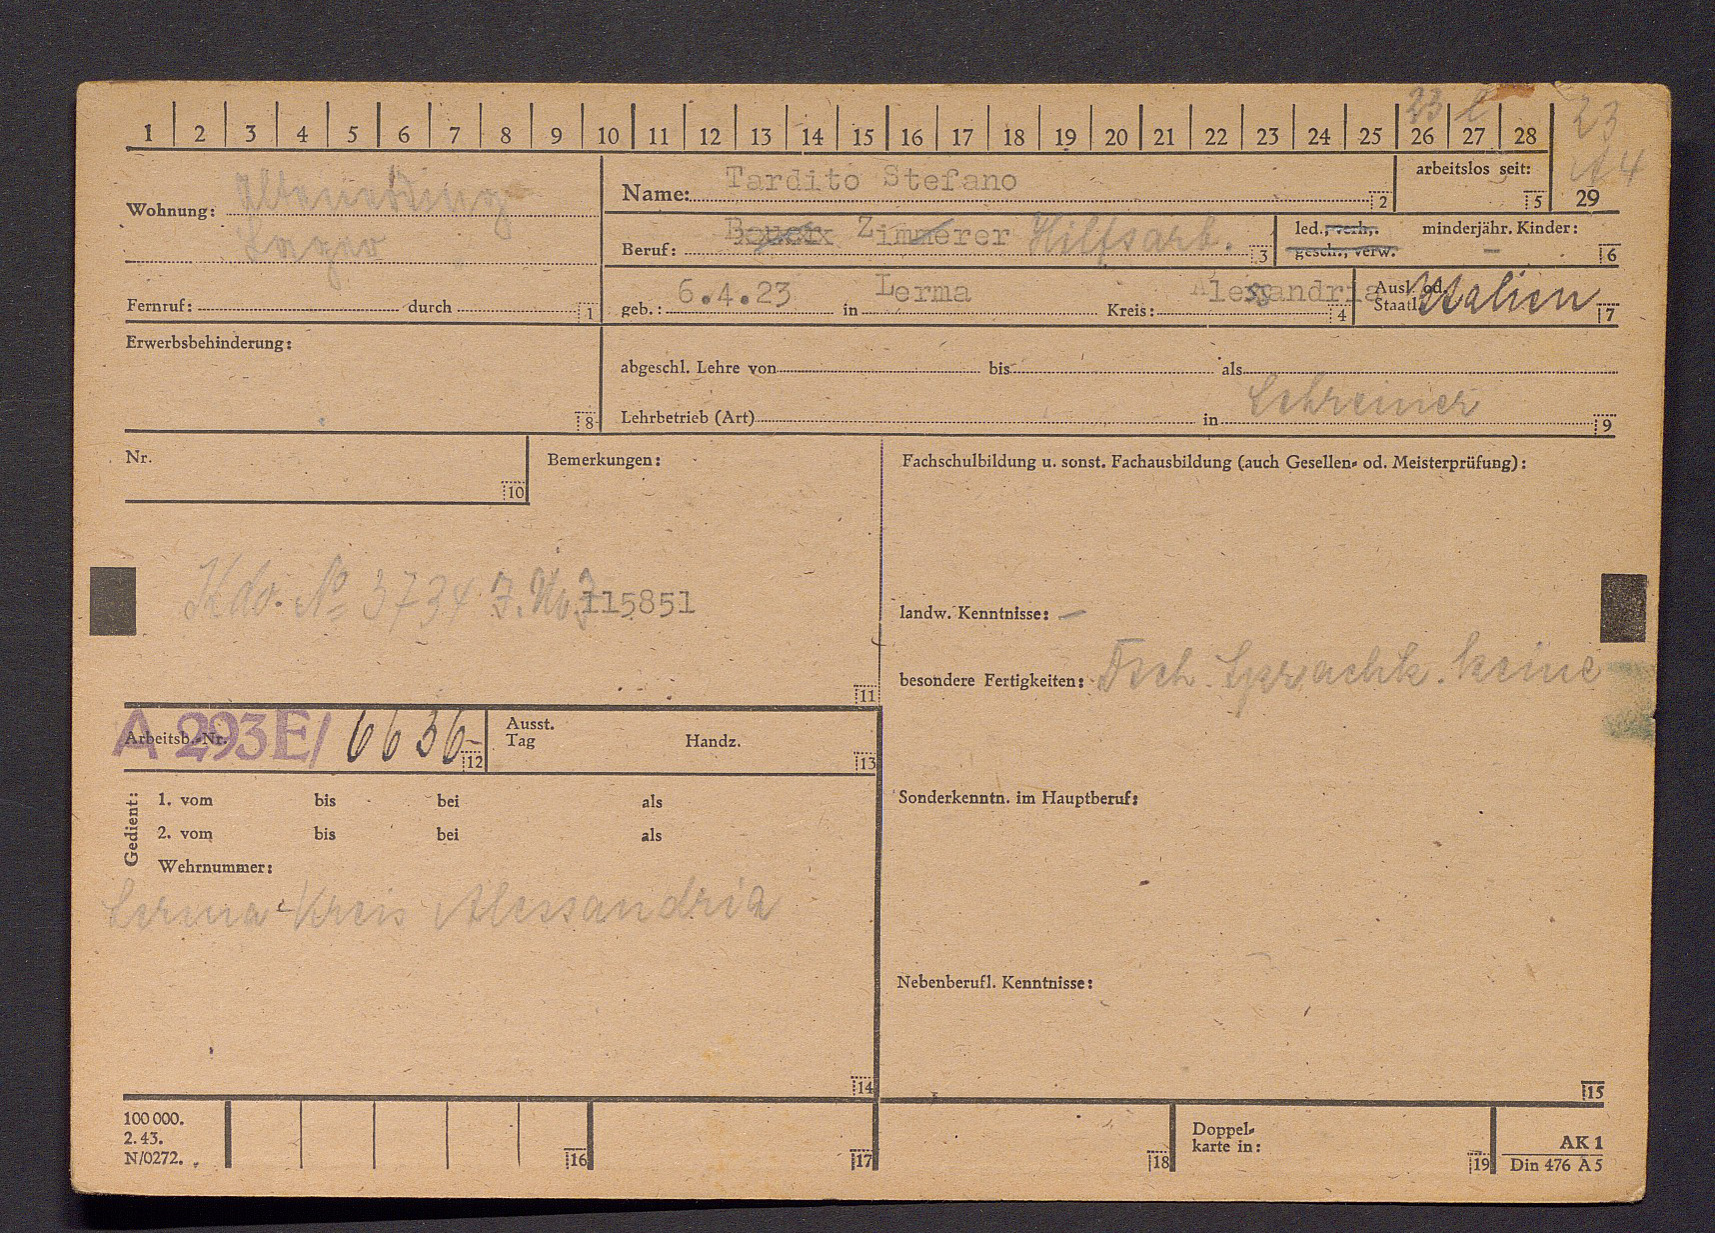 23 e 23
1 2 3 4 5 6 7 8 9 10 11 12 13 14 15 16 17 18 19 20 21 22 23 24 25 26 27 28
A 4
29
Wohnung:
Lager
Fernruf: durch 1
Name: Tardito Stefano 2
arbeitslos seit: 5
Beruf: Bauer Zimmerer Hilfsarb. 3
led., verh., gesch., verw.
minderjähr. Kinder: – 6
geb.: 6.4.23 in Lerma Kreis: Alessandria 4
Ausl. od. Staatl. Italien 7
Erwerbsbehinderung: 8
abgeschl. Lehre von bis als
Schreiner
Lehrbetrieb (Art) in 9
Nr. 10
Bemerkungen:
Kdo. No 3734 115851
11
Fachschulbildung u. sonst. Fachausbildung (auch Gesellen- od. Meisterprüfung):
landw. Kenntnisse: –
besondere Fertigkeiten: Dtsch. Sprachk. keine
Arbeitsb.-Nr. A 293E/ 6636 12
Ausst. Tag Handz. 13
Sonderkenntn. im Hauptberuf:
Gedient:
1. vom bis bei als
2. vom bis bei als
Wehrnummer:
Lerma Kreis Alessandria
14
Nebenberufl. Kenntnisse:
15
100 000.
2. 43.
N/0272.
16 17 18
Doppelkarte in: 19
AK 1
Din 476 A 5